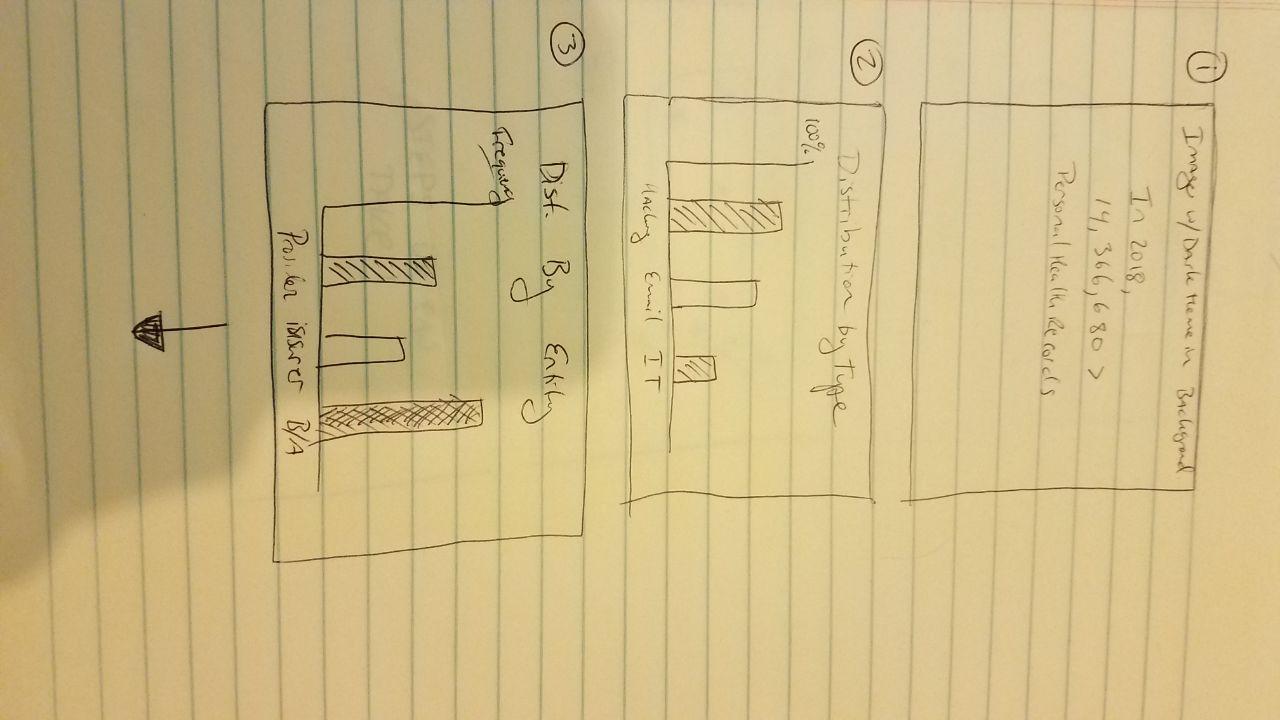 1
Image w/ Dark theme in Background
In 2018,
14,366,680 >
Personal Health Records
2
Distribution by Type
100%
Hacking Email IT
3
Dist. By Entity
Frequency
Provider insurer B/A